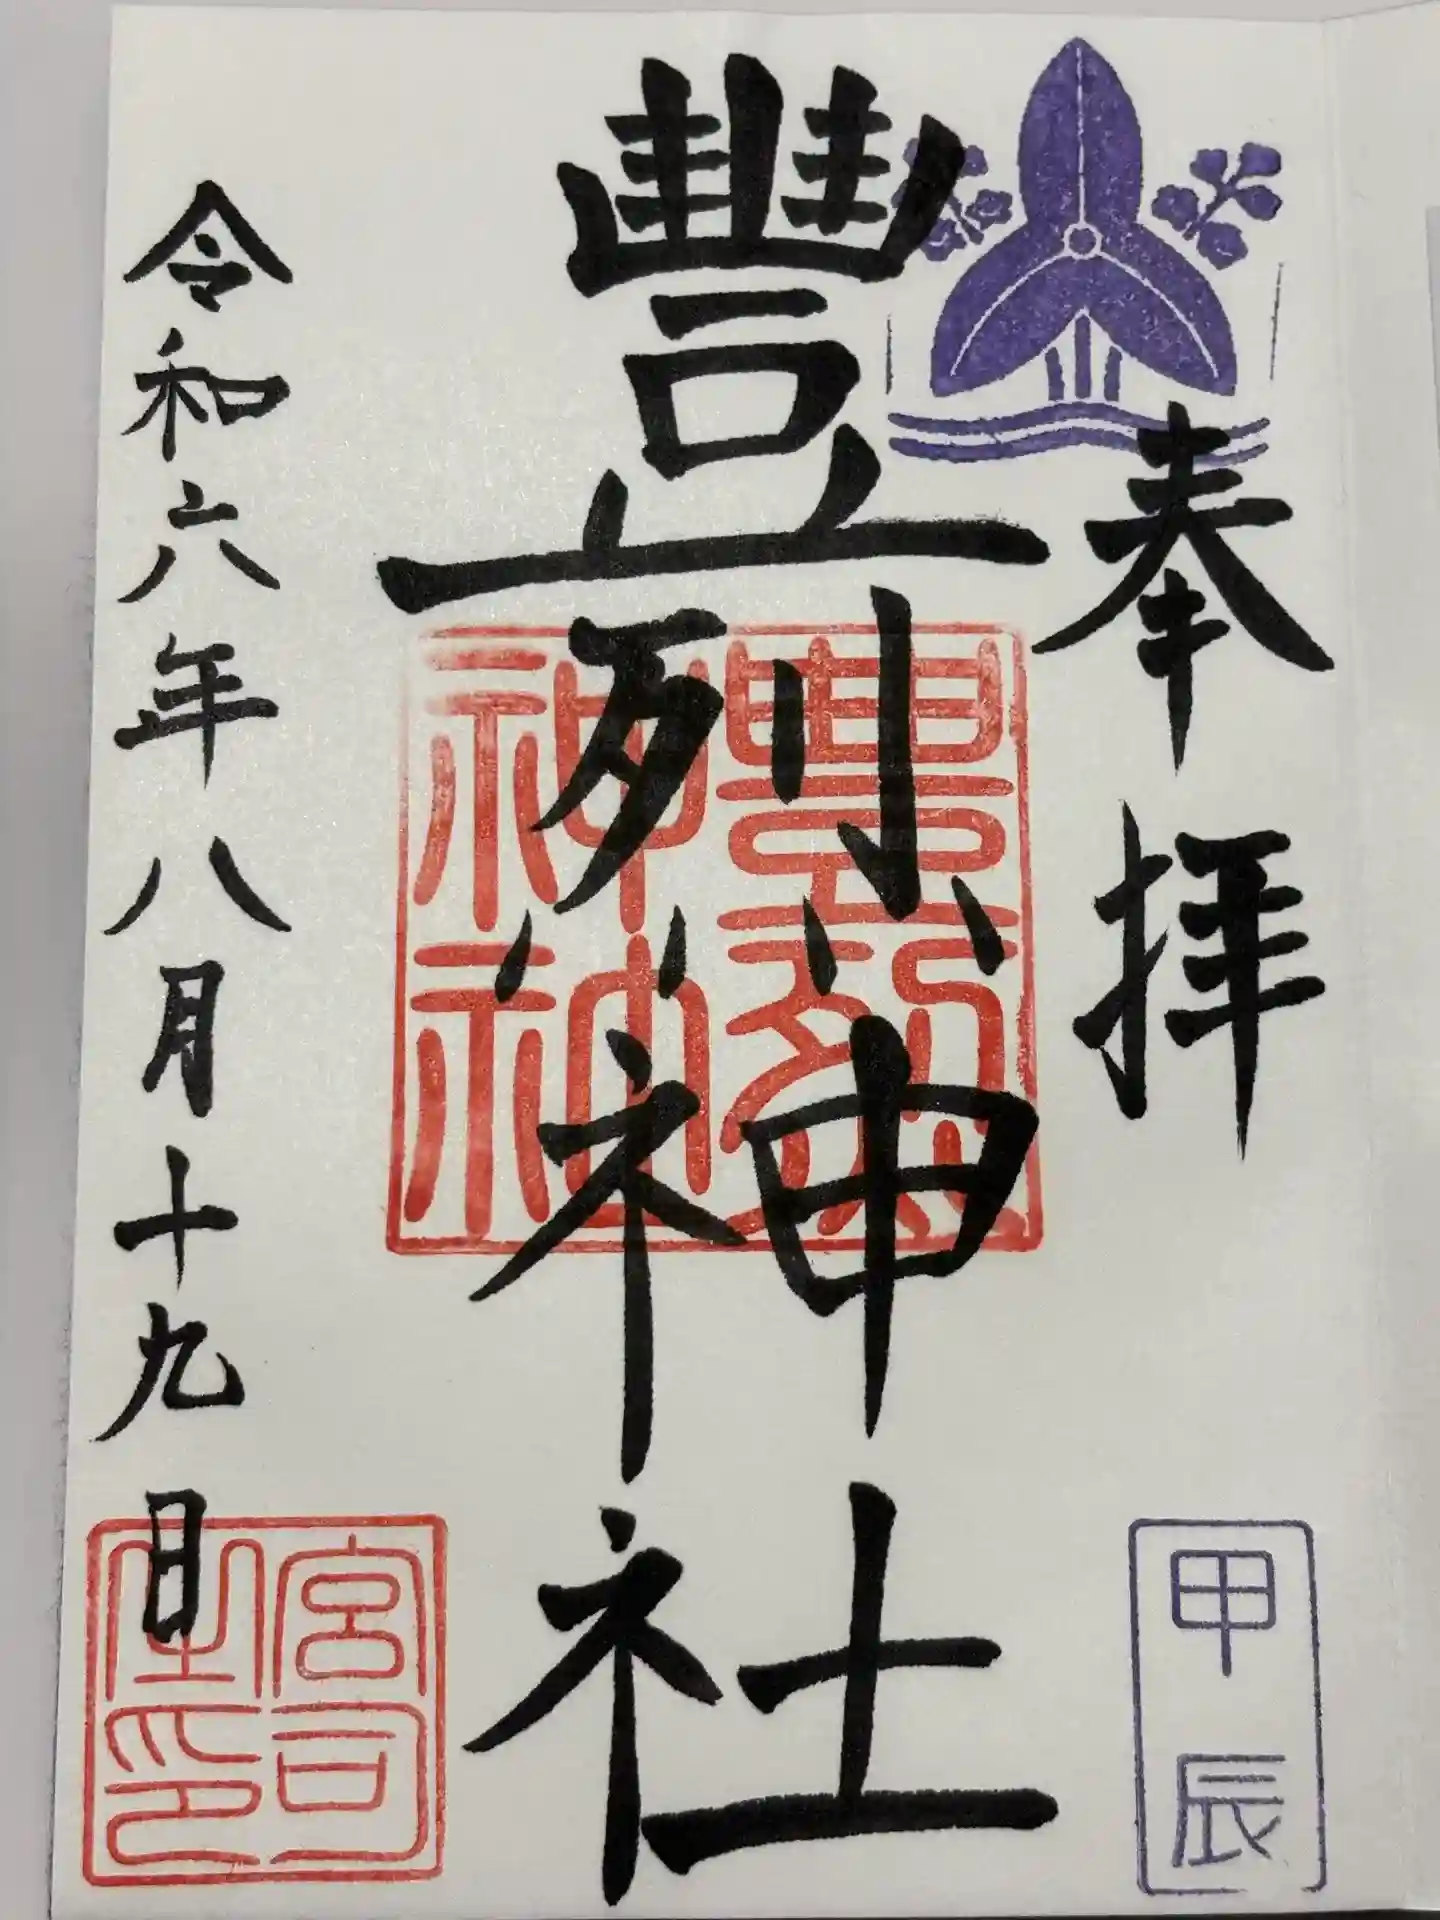 奉拝
甲辰
豊烈神社
豊烈神社
神神
令和六年八月十九日
宮司
之印